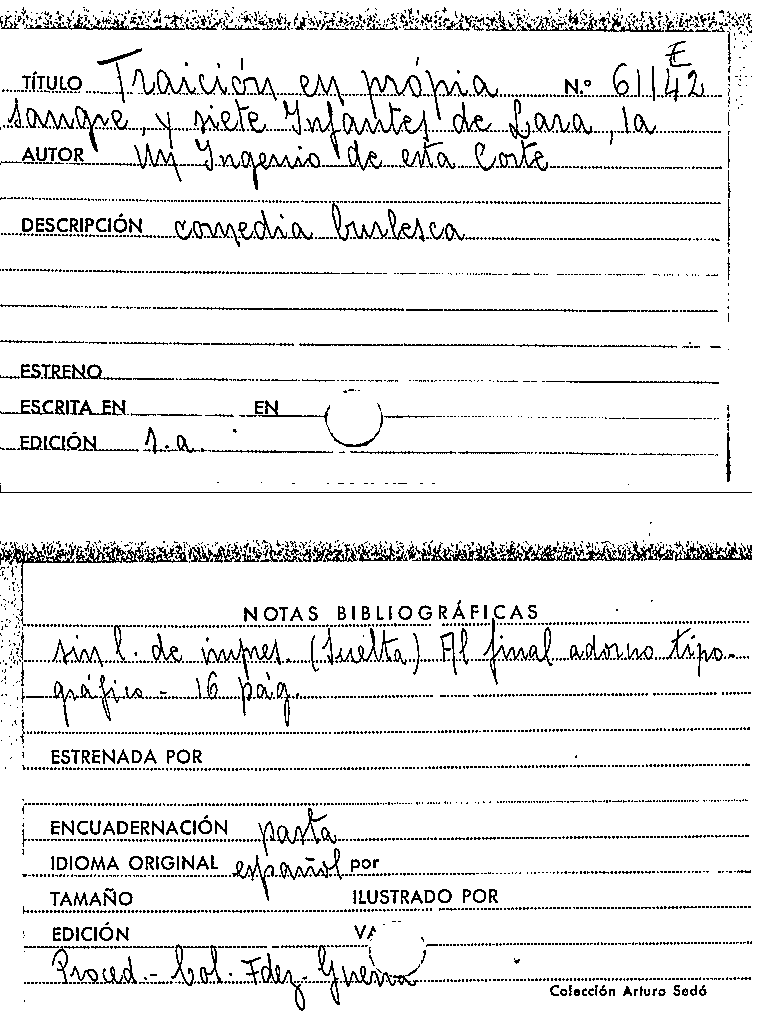 E
TÍTULO Traición en própia N.º 61142
sangre, y siete Infantes de Lara, la
AUTOR Un Ingenio de esta Corte
DESCRIPCIÓN comedia burlesca
ESTRENO
ESCRITA EN EN
EDICIÓN s.a.
NOTAS BIBLIOGRÁFICAS
sin l. de impres. (Suelta) Al final adorno tipo-
gráfico - 16 pág.
ESTRENADA POR
ENCUADERNACIÓN pasta
IDIOMA ORIGINAL español por
TAMAÑO ILUSTRADO POR
EDICIÓN VA
Proced.- Col. Fdez-Guerra
Colección Arturo Sedó